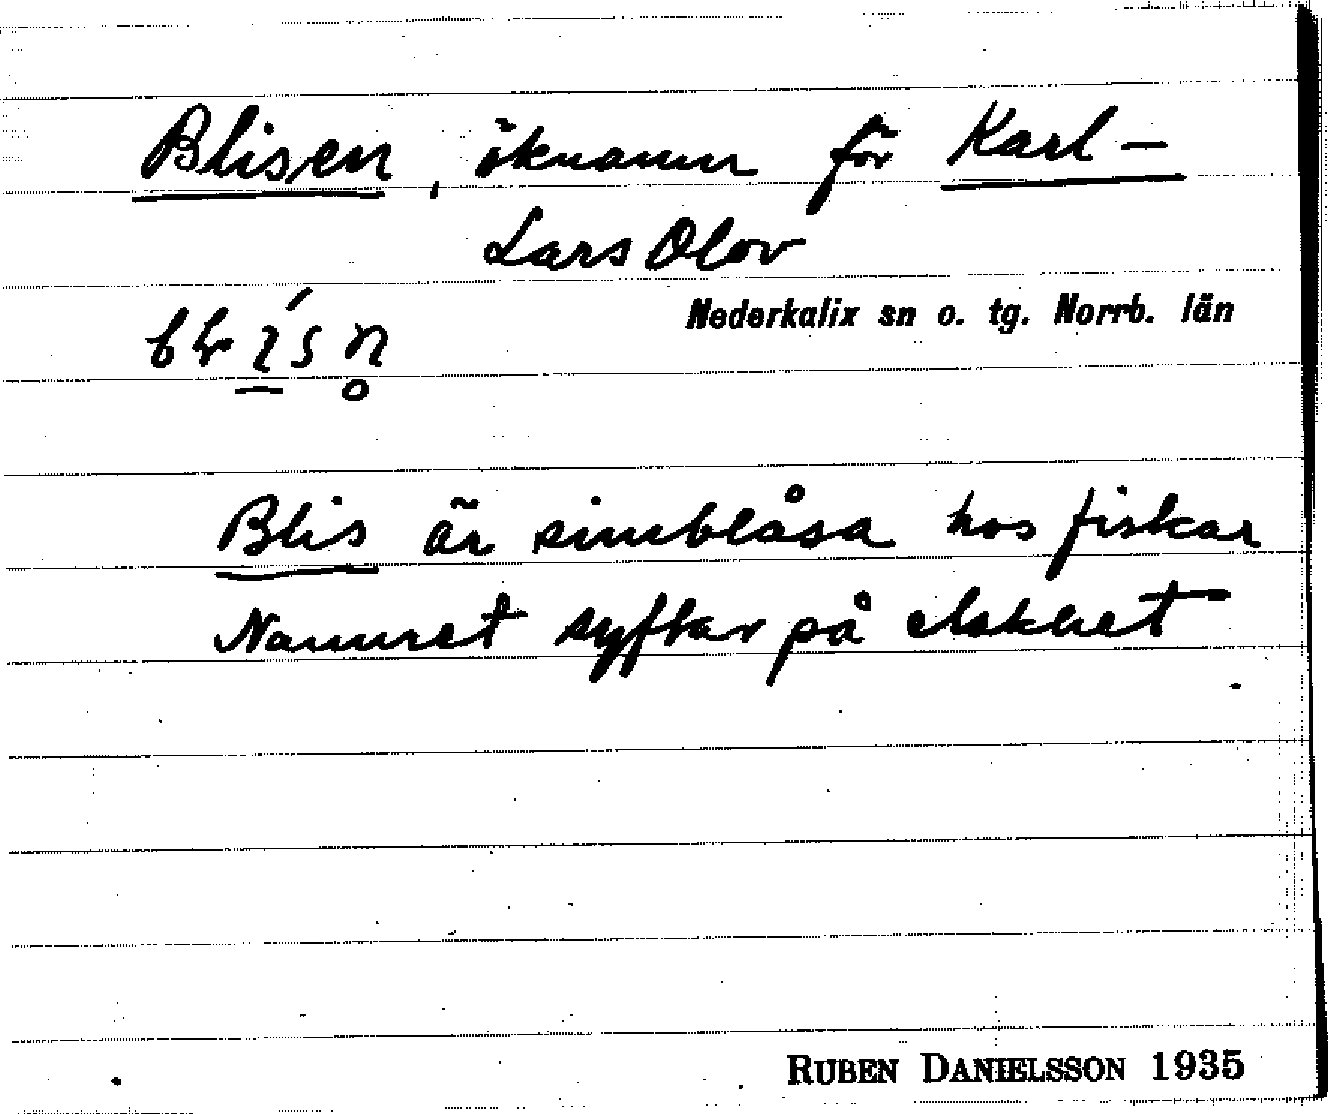 Blisen, öknamn för Karl-
Lars Olov
Nederkalix sn o. tg. Norrb. län
Blis är simblåsa hos fiskar
Namnet syftar på elakhet
RUBEN DANIELSSON 1935